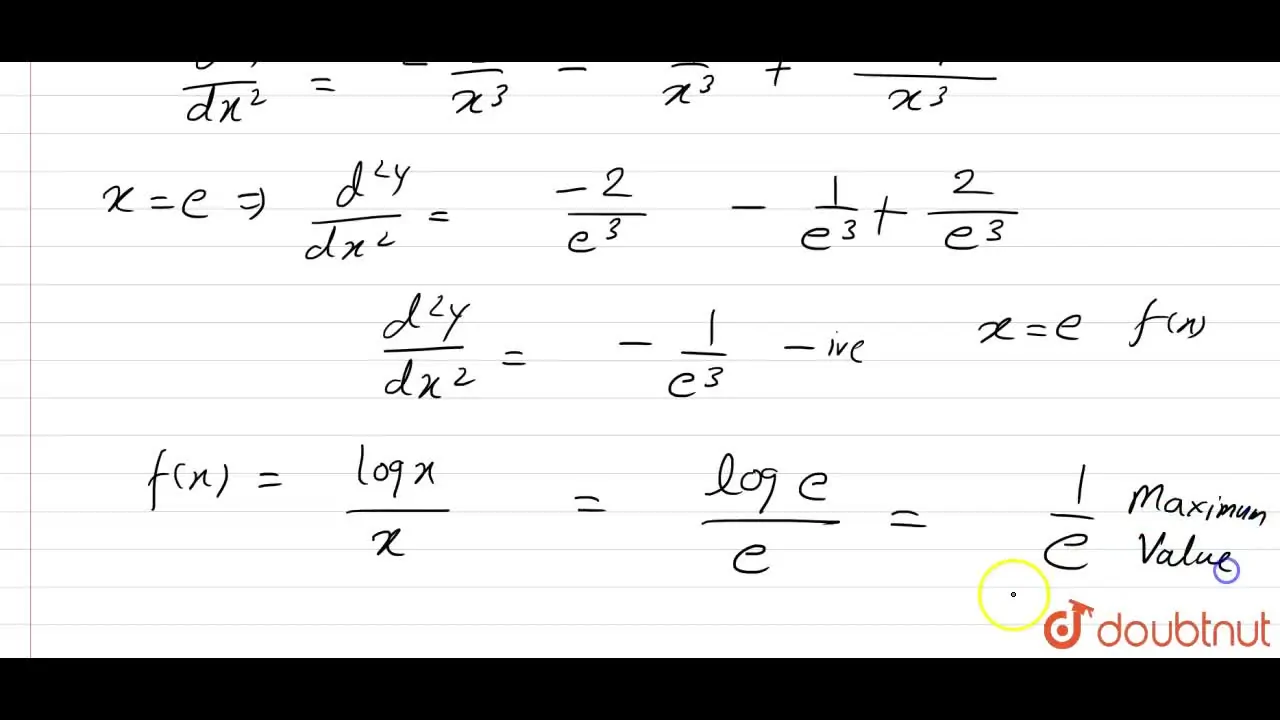 dx² = x³ - x³ + x³
x = e ⇒ d²y/dx² = -2/e³ - 1/e³ + 2/e³
d²y/dx² = - 1/e³ - ive x = e f(x)
f(x) = log x/x = log e/e = 1/e Maximum Value
doubtnut